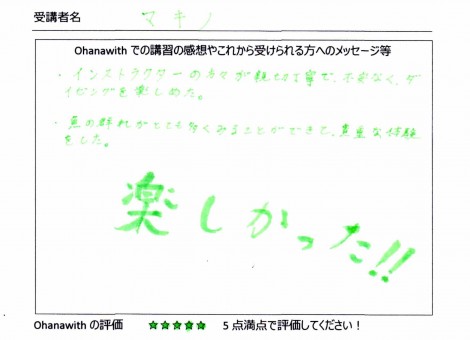 受講者名 マキノ
Ohanawithでの講習の感想やこれから受けられる方へのメッセージ等
・インストラクターの方々が親切丁寧で、不安なく、ダ
イビングを楽しめた。
・魚の群れがとても多くみることができて、貴重な体験
をした。
楽しかった!!
Ohanawithの評価 ★★★★★ 5点満点で評価してください！